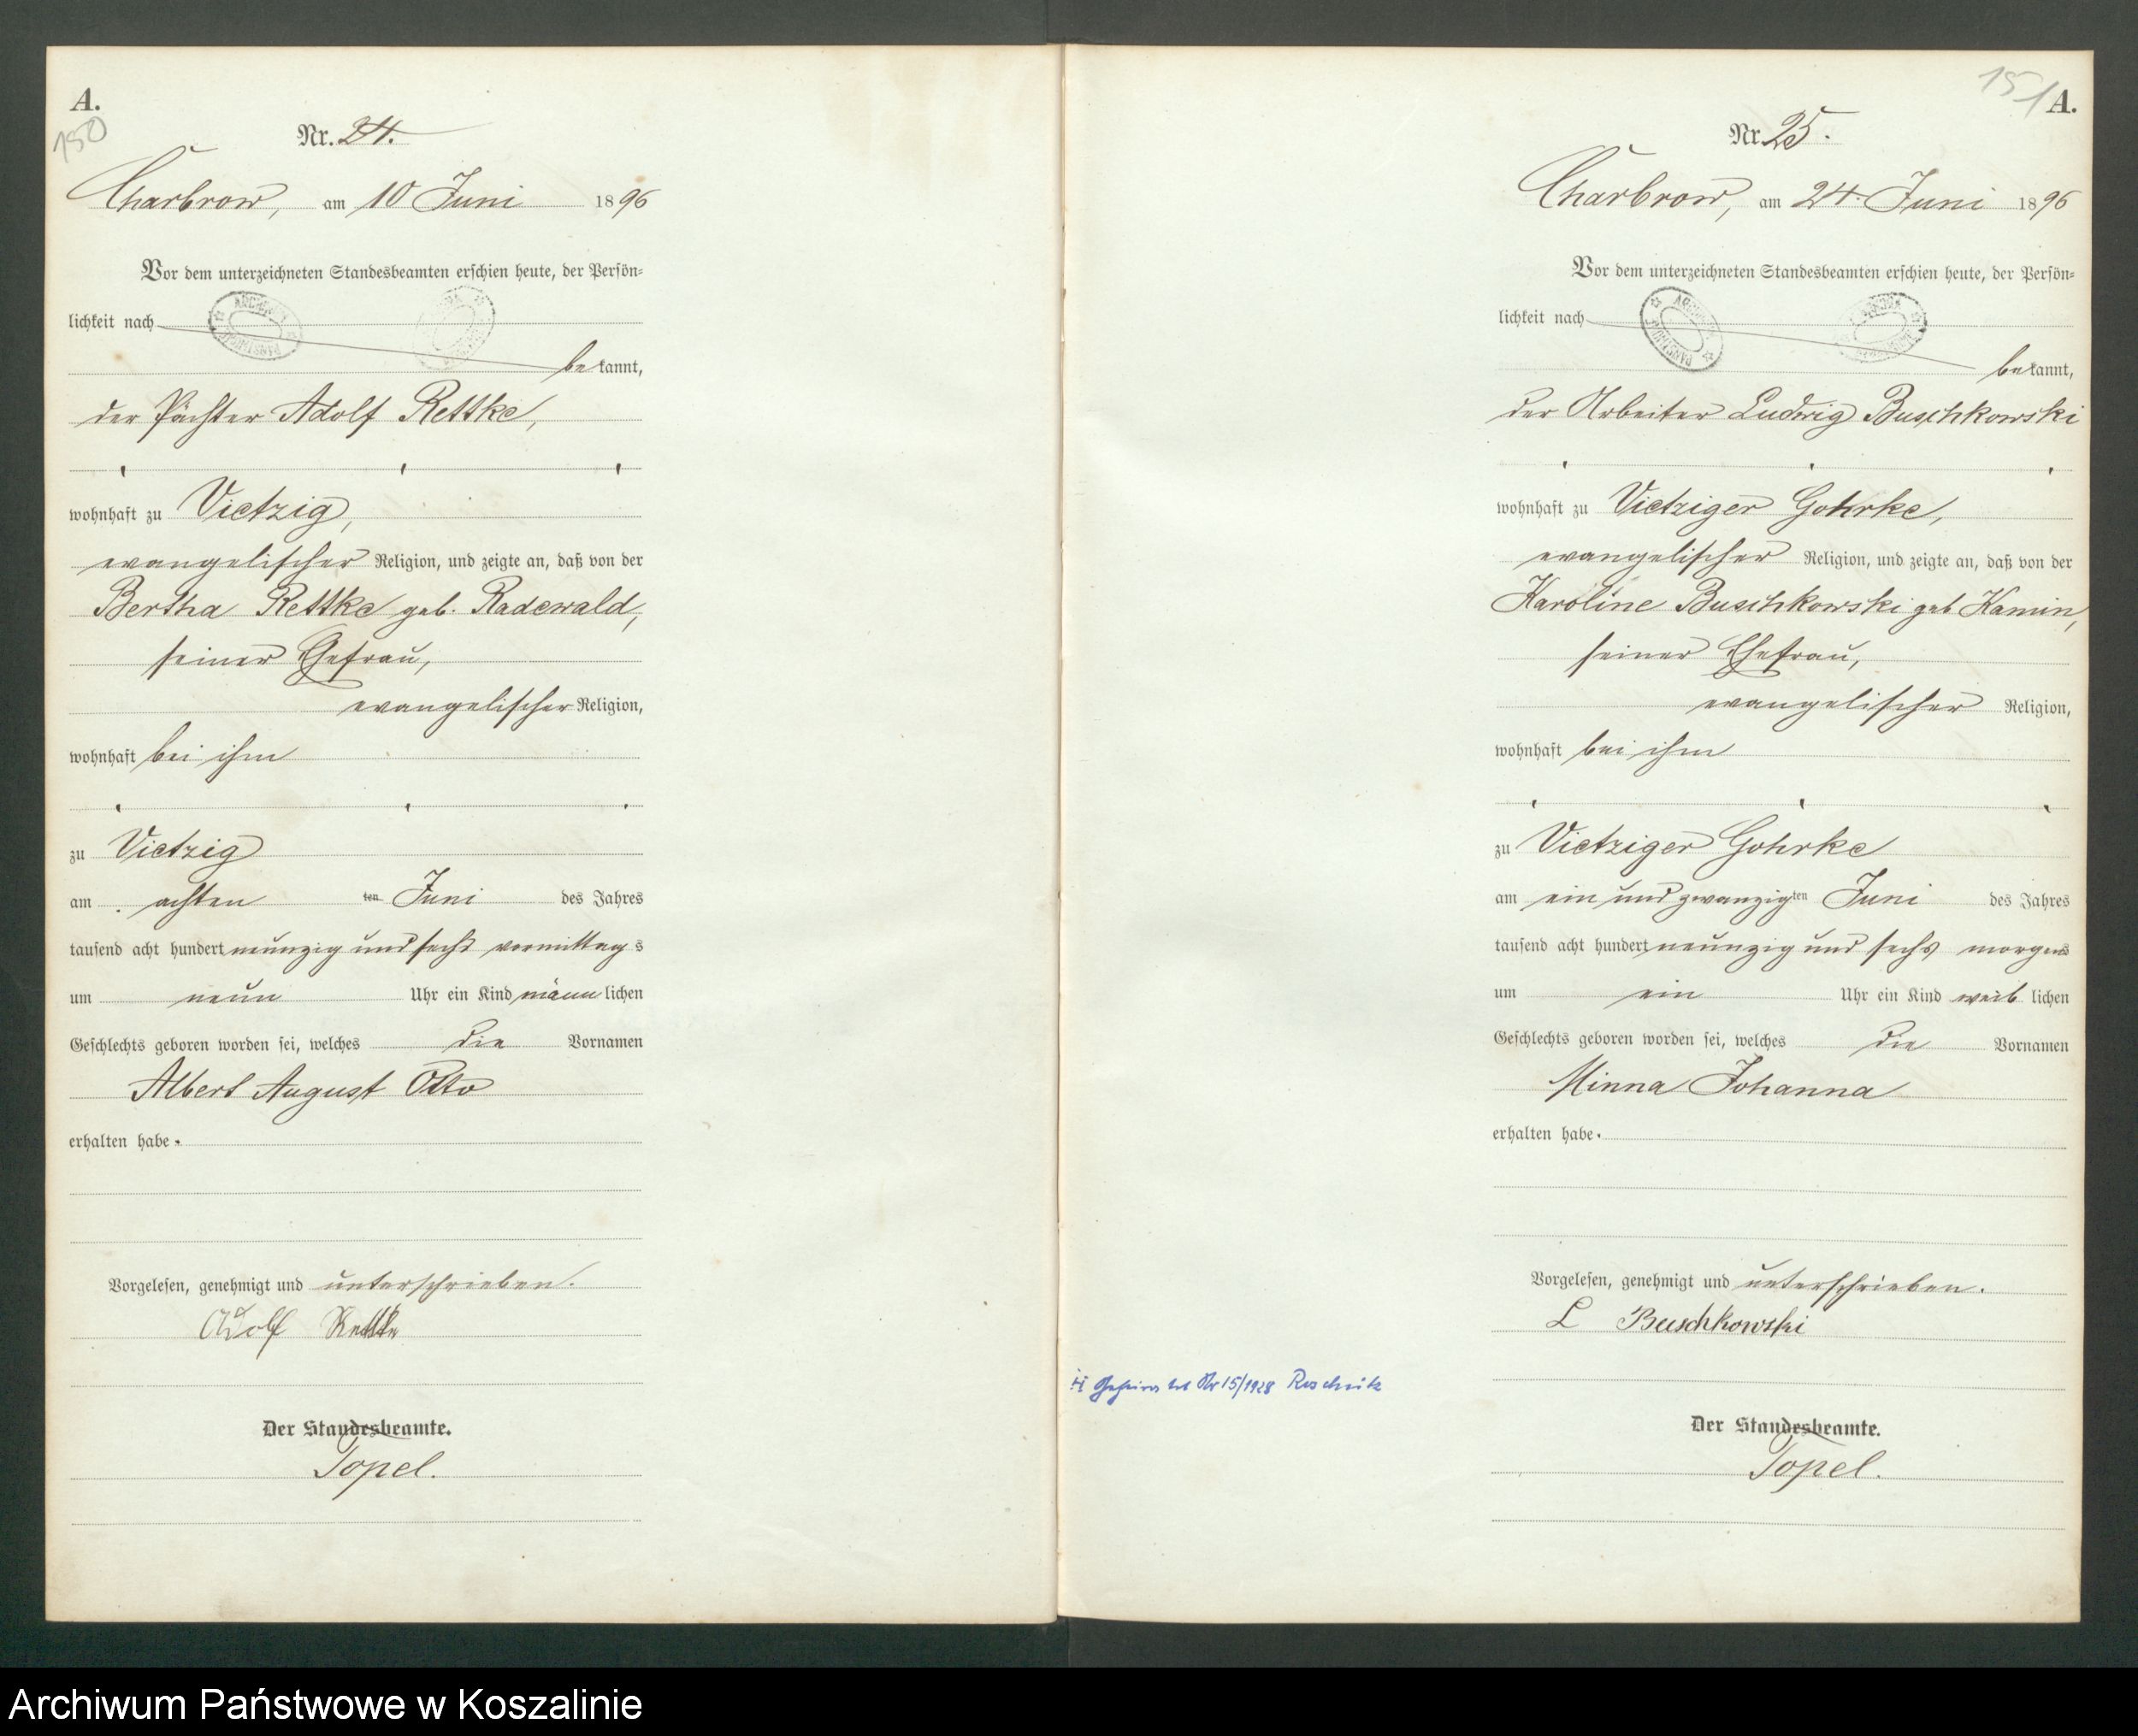 A.
150
Nr. 24.
Charbrow, am 10 Juni 1896
Vor dem unterzeichneten Standesbeamten erschien heute, der Persön=
lichkeit nach
bekannt,
der Pächter Adolf Rettke,
wohnhaft zu Vietzig,
evangelischer Religion, und zeigte an, daß von der
Bertha Rettke geb. Radewald,
seiner Ehefrau,
evangelischer Religion,
wohnhaft bei ihm
zu Vietzig
am achten ten Juni des Jahres
tausend acht hundert neunzig und sechs vormittags
um neun Uhr ein Kind männlichen
Geschlechts geboren worden sei, welches die Vornamen
Albert August Otto
erhalten habe.
Vorgelesen, genehmigt und unterschrieben.
Adolf Rettke
Der Standesbeamte.
Topel.
151
A.
Nr. 25.
Charbrow, am 24. Juni 1896
Vor dem unterzeichneten Standesbeamten erschien heute, der Persön=
lichkeit nach
bekannt,
der Arbeiter Ludwig Buschkowski
wohnhaft zu Vietziger Gohrke,
evangelischer Religion, und zeigte an, daß von der
Karoline Buschkowski geb Kamin,
seiner Ehefrau,
evangelischer Religion,
wohnhaft bei ihm
zu Vietziger Gohrke
am ein und zwanzigten Juni des Jahres
tausend acht hundert neunzig und sechs morgens
um ein Uhr ein Kind weiblichen
Geschlechts geboren worden sei, welches die Vornamen
Minna Johanna
erhalten habe.
Vorgelesen, genehmigt und unterschrieben.
L Buschkowski
Geheiratet Nr 15/1928
Der Standesbeamte.
Topel.
Archiwum Państwowe w Koszalinie